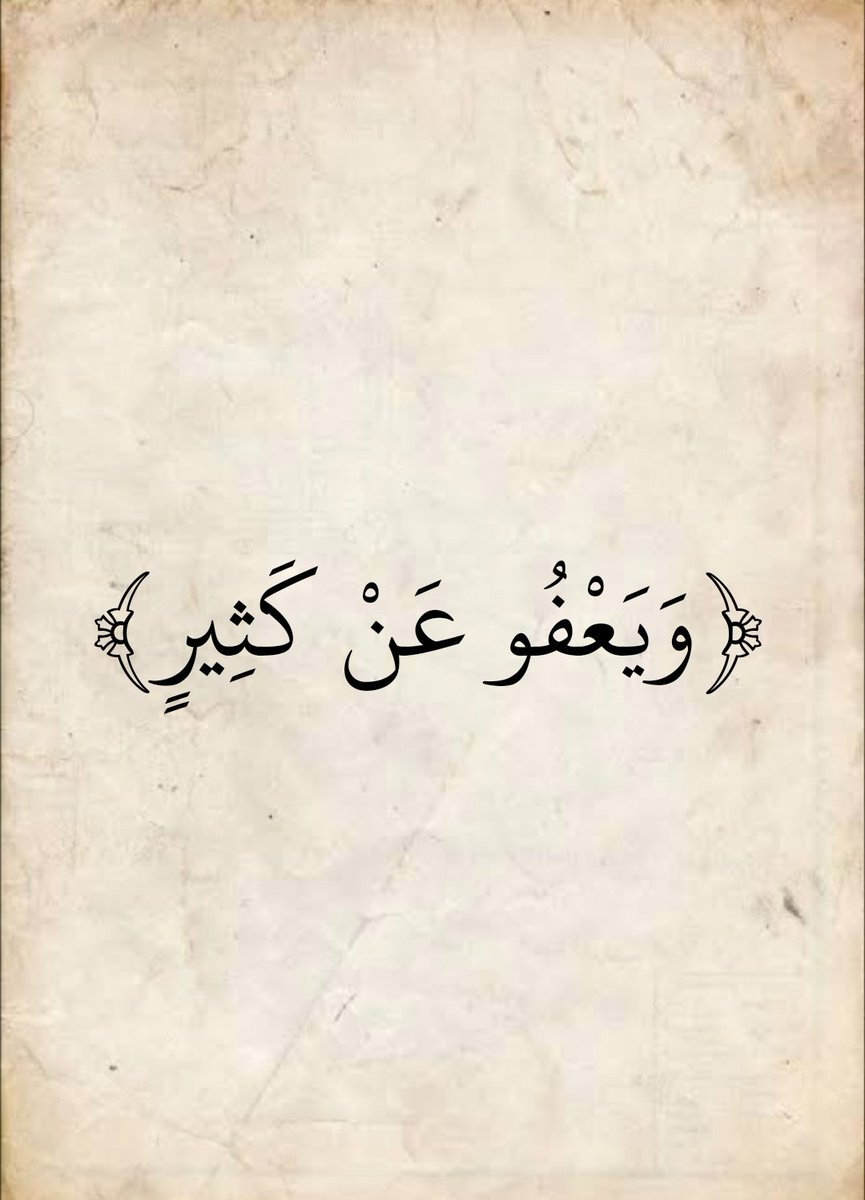 ﴿وَيَعْفُو عَنْ كَثِيرٍ﴾